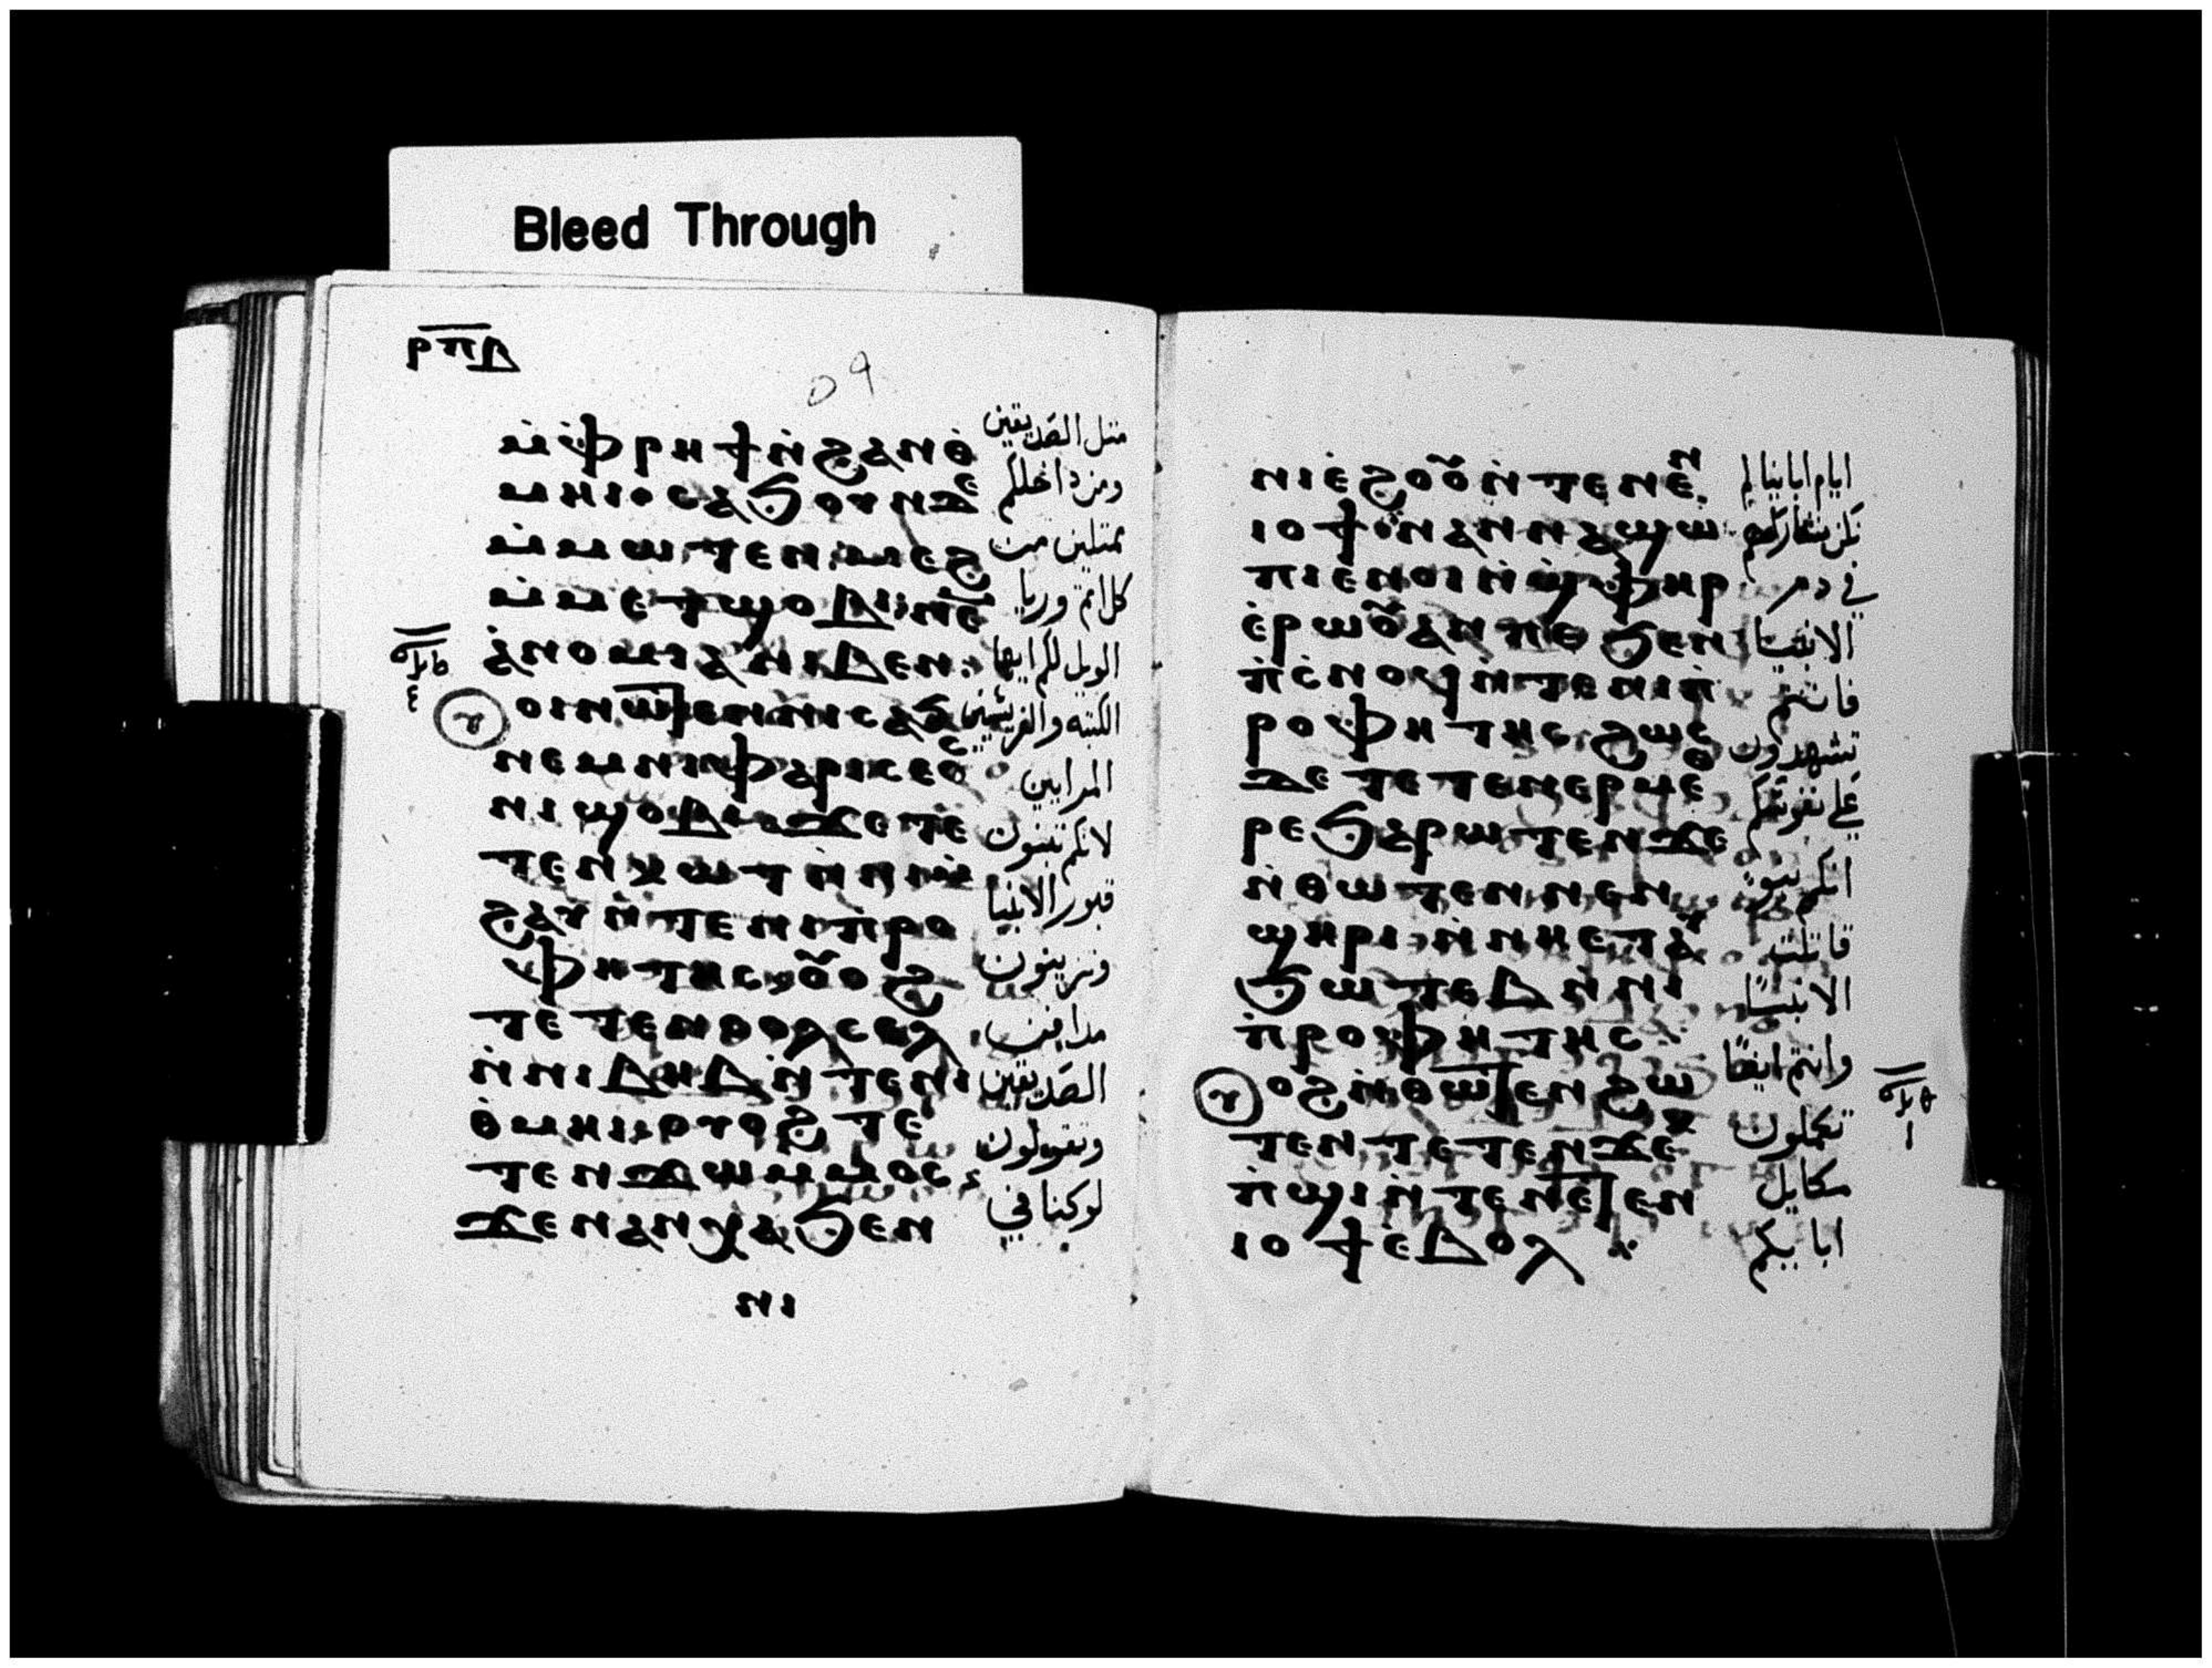 Bleed Through
ⲣⲡⲃ
٥٩
ⲙ̀ⲫⲣⲏϯⲛ̀ϩⲁⲛⲑ̀
ⲙⲏⲓⲥⲁϧⲟⲩⲛⲇⲉ
ⲙ̀ⲙⲱⲧⲉⲛ ⲙⲉϩ
ⲙ̀ⲙⲉⲧϣⲟⲃⲓ ⲛⲉ
ⲁ̀ⲛⲟⲙⲓⲁ ⲛⲓⲃⲉⲛ
ⲟⲓⲛⲱⲧⲉⲛⲛⲓⲥⲁϧ
ⲛⲉⲙⲛⲓⲫⲁⲣⲓⲥⲉⲟⲥ
ⲛⲓϣⲟⲃⲓ ϫⲉⲧⲉ
ⲧⲉⲛⲕⲱⲧ ⲛ̀ⲛⲓⲙ̀
ϩⲁⲩⲛ̀ⲧⲉⲛⲓⲡ̀ⲣⲟ
ⲫⲏⲧⲏⲥ ⲟⲩⲟϩ
ⲧⲉⲧⲉⲛⲥⲟⲗⲥⲉⲗ
ⲛ̀ⲛⲓⲃⲏⲃⲛ̀ⲧⲉⲛⲓ
ⲑ̀ⲙⲏⲓ ⲟⲩⲟϩ ⲧⲉ
ⲧⲉⲛϫⲱⲙⲙⲟⲥ
ϫⲉⲛⲁⲛⲭⲁϧⲉⲛ
ⲛⲓ
مثل الصديقين
ومن داخلكم
ممتلين من
كل اثم وريا
الويل لكم ايها
الكتبه والفريسيين
المرايين
لانكم تبنون
قبور الانبيا
وتزينون
مدافن
الصديقين
وتقولون
لو كنا في
ⲛⲓⲉ̀ϩⲟⲟⲩⲛ̀ⲧⲉⲛⲉⲛ
ⲓⲟϯ ⲛⲁⲛⲛⲁϣⲱ
ⲡⲓⲉⲛⲟⲓⲛ̀ϣ̀ⲫⲏⲣ
ⲉ̀ⲣⲱⲟⲩⲁⲛⲡⲉ ϧⲉⲛ
ⲡ̀ⲥ̀ⲛⲟϥⲛ̀ⲧⲉⲛⲓⲡ̀
ⲣⲟⲫⲏⲧⲏⲥ ϩⲱⲥ
ⲇⲉ ⲧⲉⲧⲉⲛⲉⲣⲙⲉⲑ
ⲣⲉϧⲁⲣⲱⲧⲉⲛϫⲉ
ⲛ̀ⲑⲱⲧⲉⲛ ⲛⲉⲛ
ϣⲏⲣⲓ ⲛ̀ⲛⲏⲉⲧⲁⲩ
ϧⲱⲧⲉⲃ ⲛ̀ⲛⲓ
ⲡ̀ⲣⲟⲫⲏⲧⲏⲥ
ⲟϩⲛ̀ⲑⲱⲧⲉⲛ ϩⲱ
ⲧⲉⲛ ⲧⲉⲧⲉⲛϫⲉⲕ
ⲡ̀ϣⲓⲛ̀ⲧⲉⲛⲉⲧⲉⲛ
ⲓⲟϯⲉ̀ⲃⲟⲗ
ايام ابائنا لم
نكن نشاركهم
في دم
الانبيا
فانتم
تشهدون
على نفوسكم
انكم بنو
قاتلت
الانبيا
وانتم ايضا
تكملون
مكايل
ابايكم